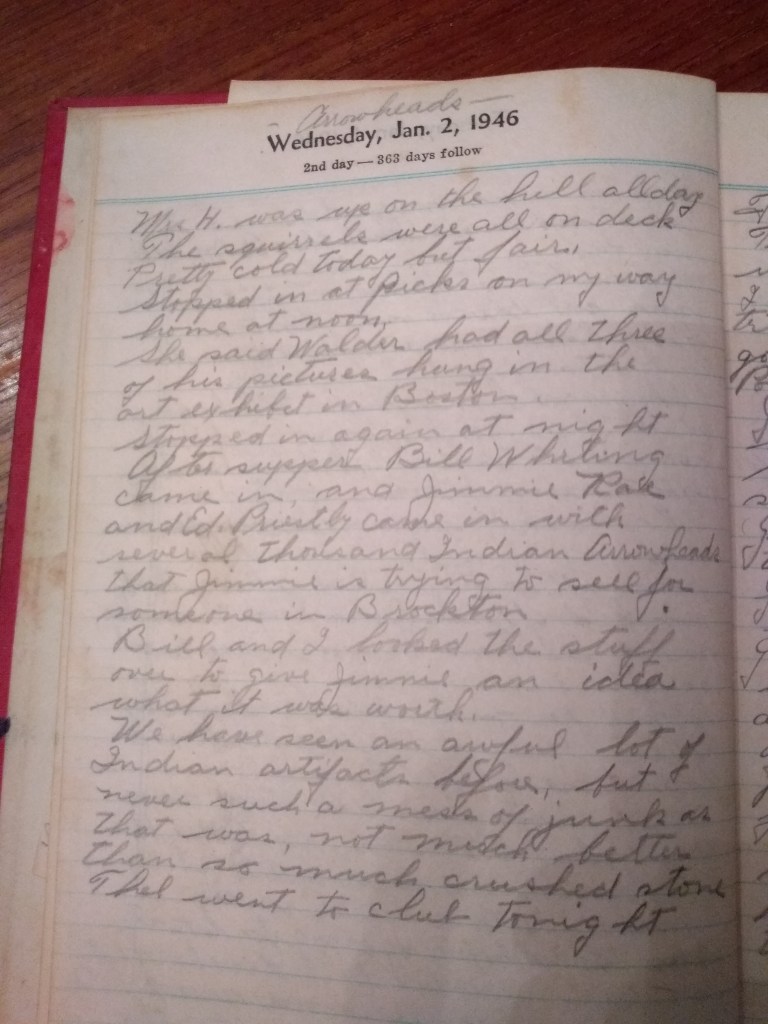 - Arrowheads -
Wednesday, Jan. 2, 1946
2nd day — 363 days follow
Mr. H. was up on the hill all day
The squirrels were all on deck
Pretty cold today but fair.
Stopped in at Picks on my way
home at noon,
She said Walder had all three
of his pictures hung in the
art exhibit in Boston.
Stopped in again at night
After supper Bill Whiting
came in, and Jimmie Rae
and Ed. Priestly came in with
several thousand Indian Arrowheads
that Jimmie is trying to sell for
someone in Brockton.
Bill and I looked the stuff
over to give Jimmie an idea
what it was worth.
We have seen an awful lot of
Indian artifacts before, but
never such a mess of junk as
that was, not much better
than so much crushed stone
Thel went to club tonight